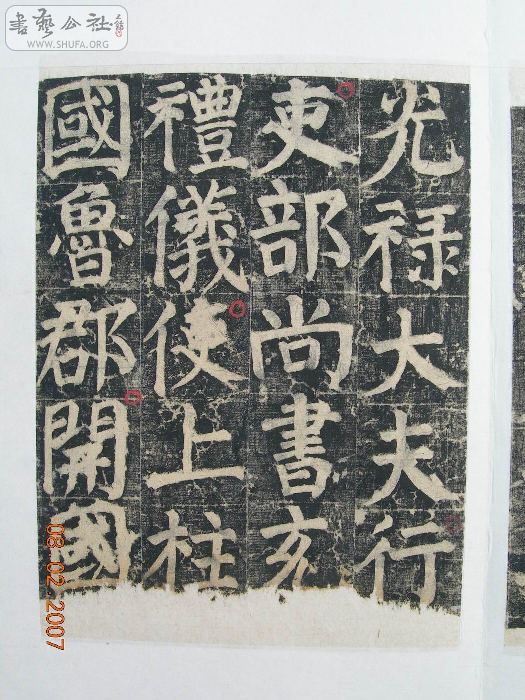 書藝公社
WWW.SHUFA.ORG
光禄大夫行
吏部尚書充
禮儀使上柱
國魯郡開國
08.02.2007